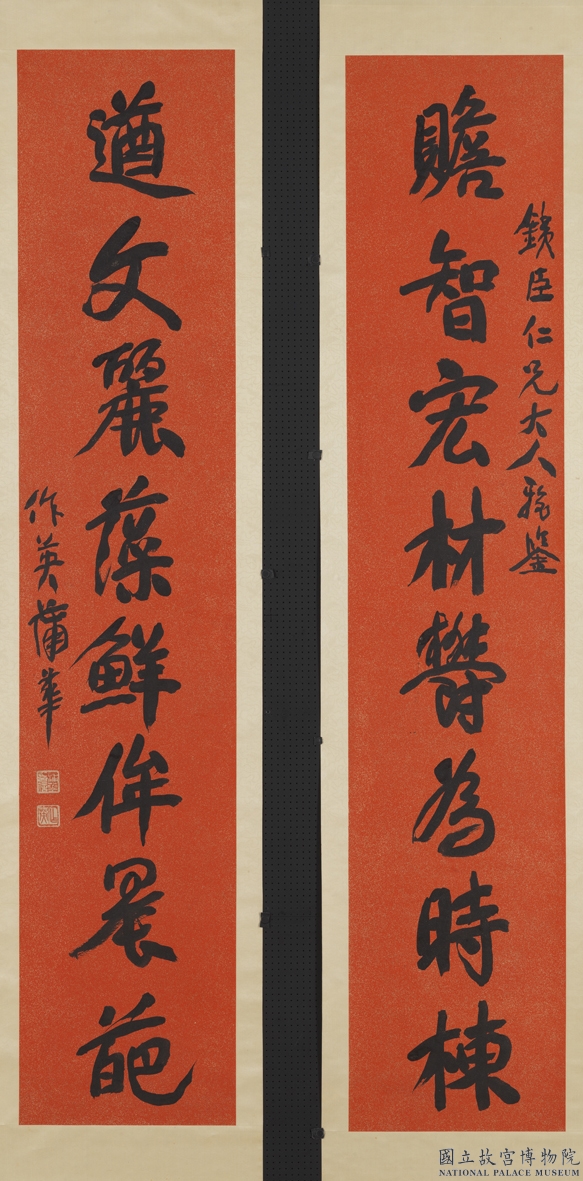 贍智宏材鬱為時棟
銕臣仁兄大人雅鑒
遒文麗藻鮮侔晨葩
作英蒲華
國立故宮博物院
NATIONAL PALACE MUSEUM